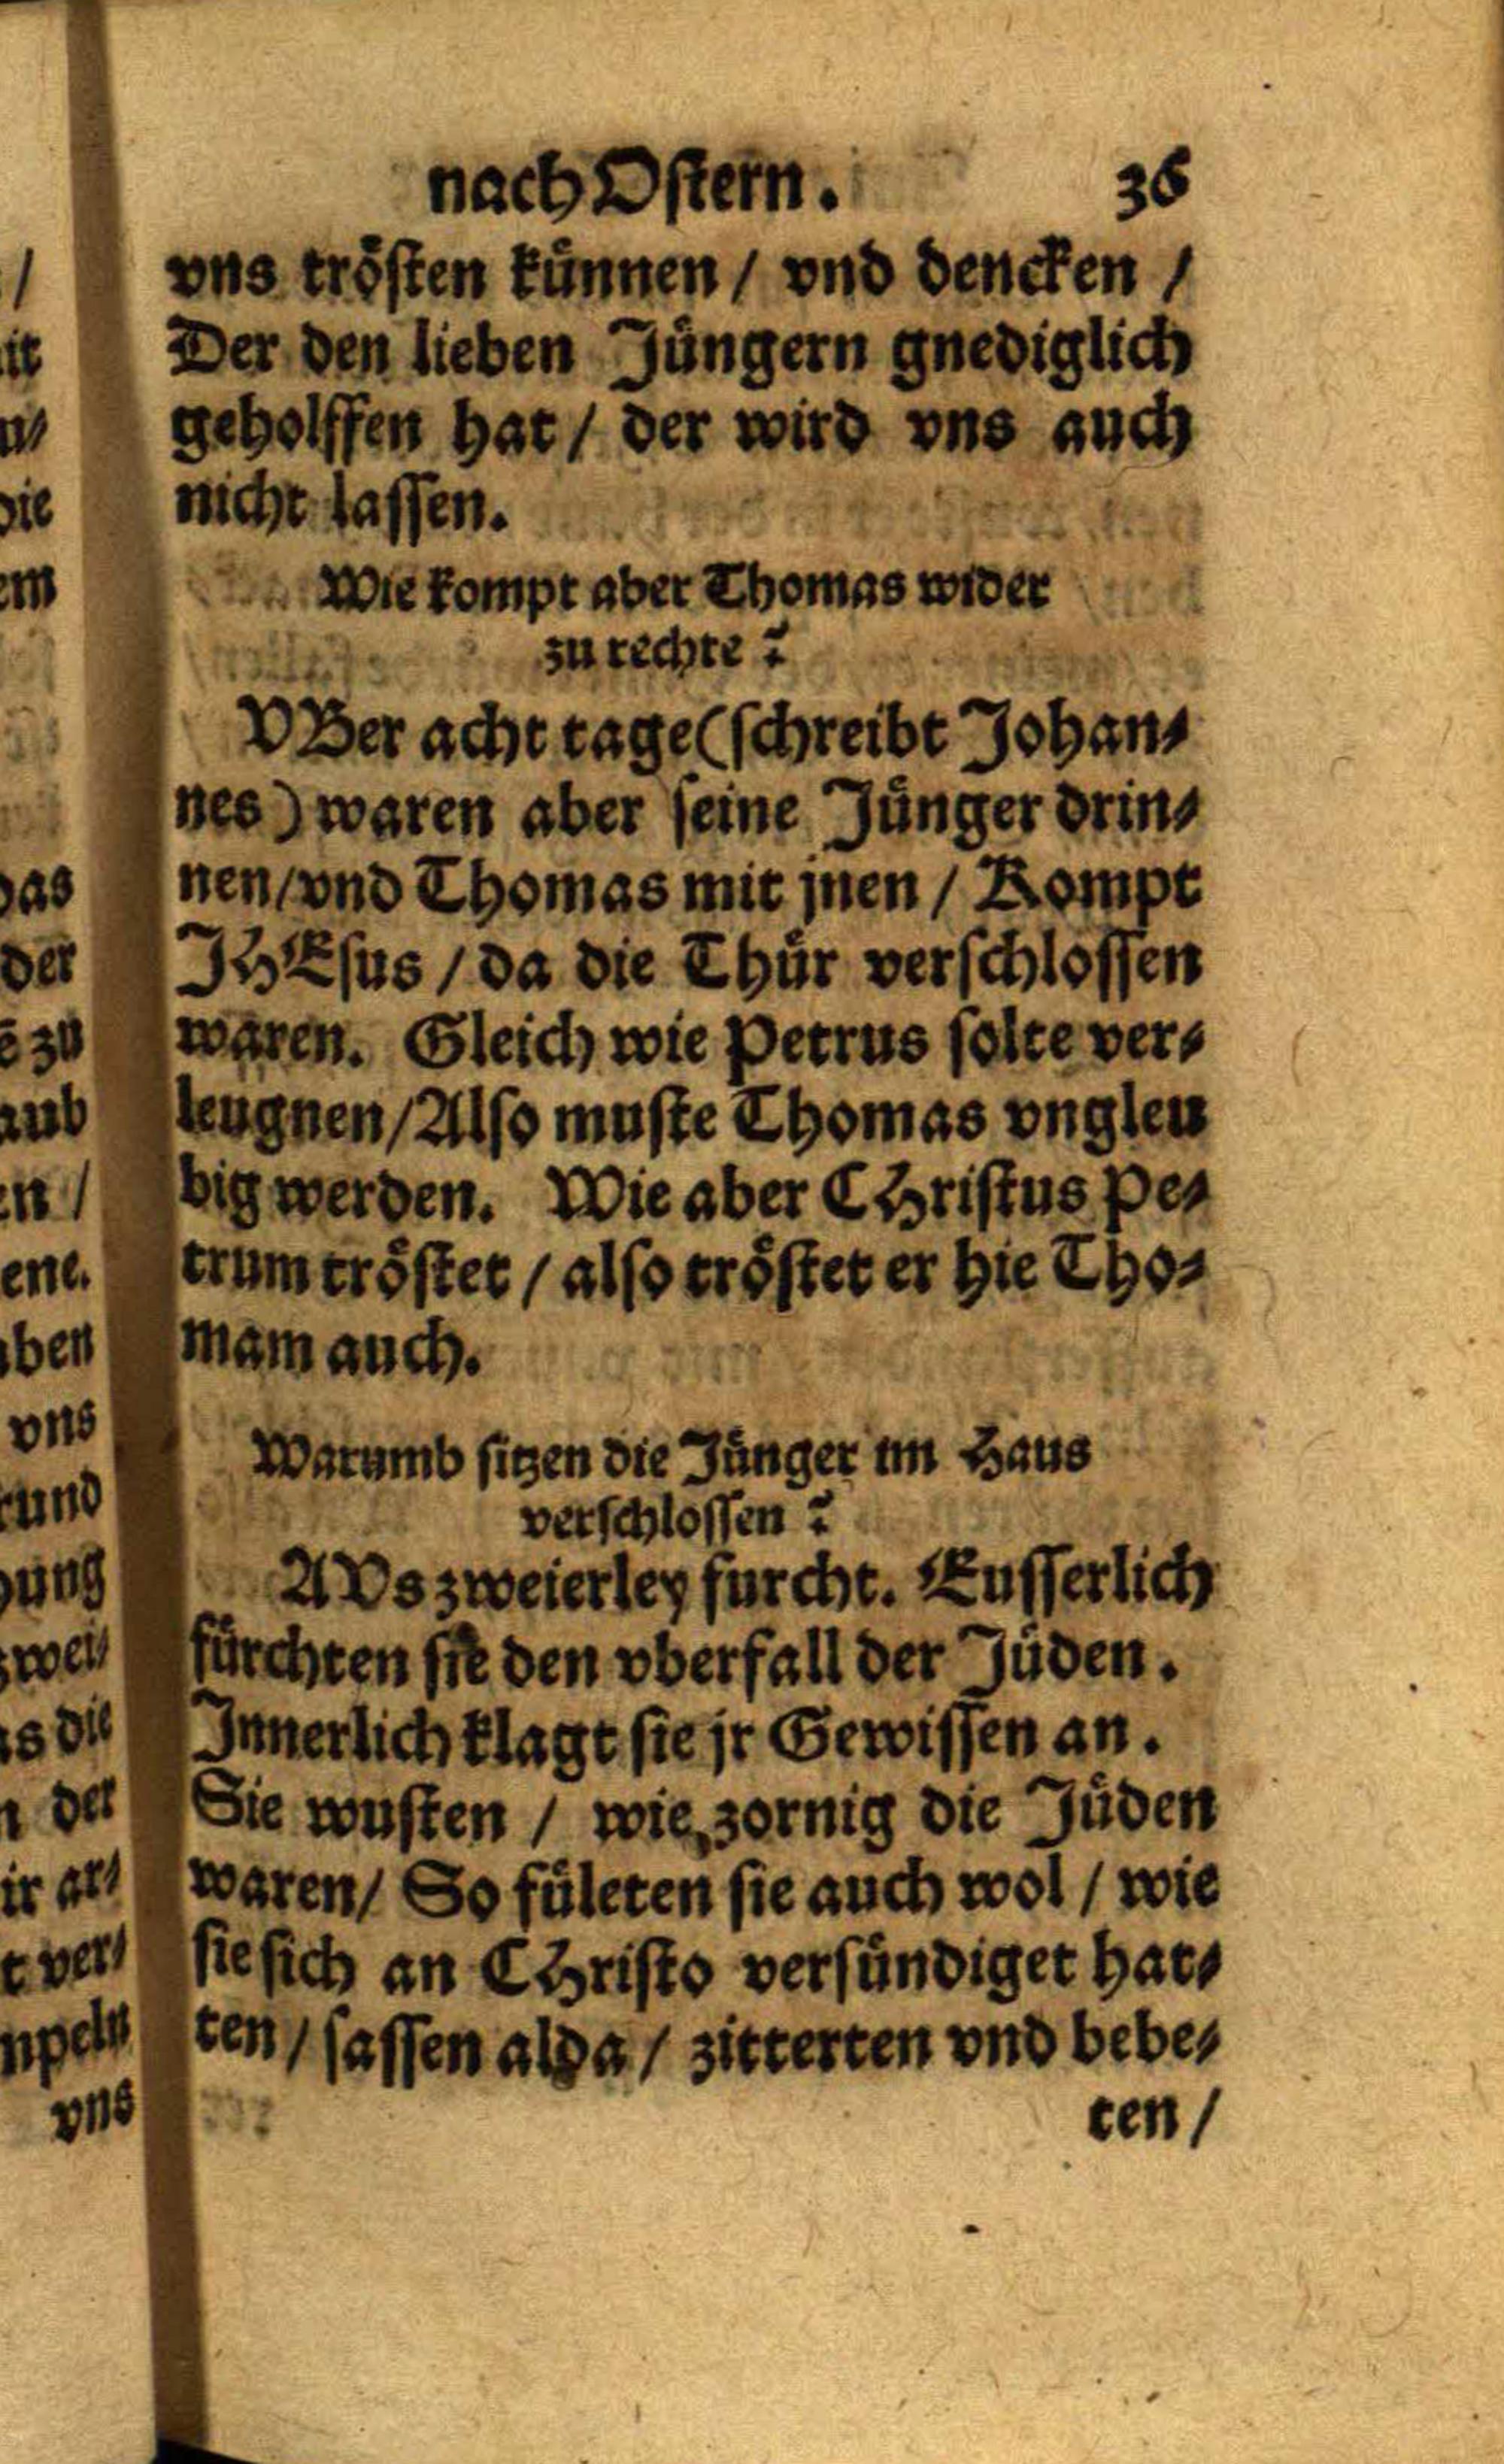 nach Oſtern. 36
vns troͤſten kuͤnnen / vnd dencken /
Der den lieben Juͤngern gnediglich
geholffen hat / der wird vns auch
nicht laſſen.
Wie kompt aber Thomas wider
zu rechte?
VBer acht tage (ſchreibt Johan⸗
nes) waren aber ſeine Juͤnger drin⸗
nen / vnd Thomas mit jnen / Kompt
JHEſus / da die Thuͤr verſchloſſen
waren. Gleich wie Petrus ſolte ver⸗
leugnen / Alſo muſte Thomas vngleu
big werden. Wie aber CHriſtus Pe⸗
trum troͤſtet / alſo troͤſtet er hie Tho⸗
mam auch.
Warumb ſitzen die Juͤnger im Haus
verſchloſſen?
AVs zweierley furcht. Euſſerlich
fuͤrchten ſie den vberfall der Juͤden.
Innerlich klagt ſie jr Gewiſſen an.
Sie wuſten / wie zornig die Juͤden
waren / So fuͤleten ſie auch wol / wie
ſie ſich an CHriſto verſuͤndiget hat⸗
ten / ſaſſen alda / zitterten vnd bebe⸗
ten /